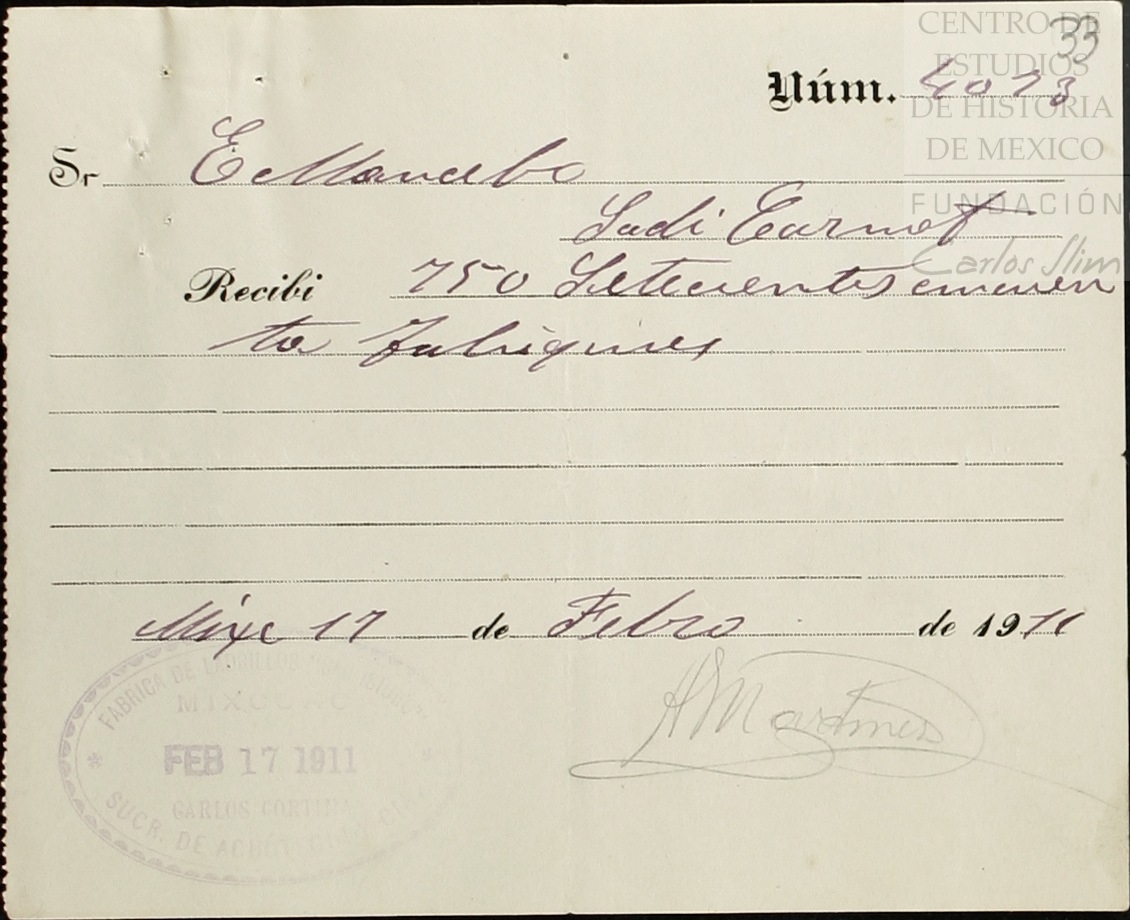 CENTRO DE
ESTUDIOS
DE HISTORIA
DE MEXICO
FUNDACIÓN
Carlos Slim
33
Núm. 4073
Sr E Mancebo
Sadi Carnot
Recibi 750 Setecientos cincuen
ta tabiques
Mixc 17 de Febro de 1911
A Martinez
FABRICA DE LADRILLOS
MIXCOAC
FEB 17 1911
CARLOS CORTINA
SUCR. DE